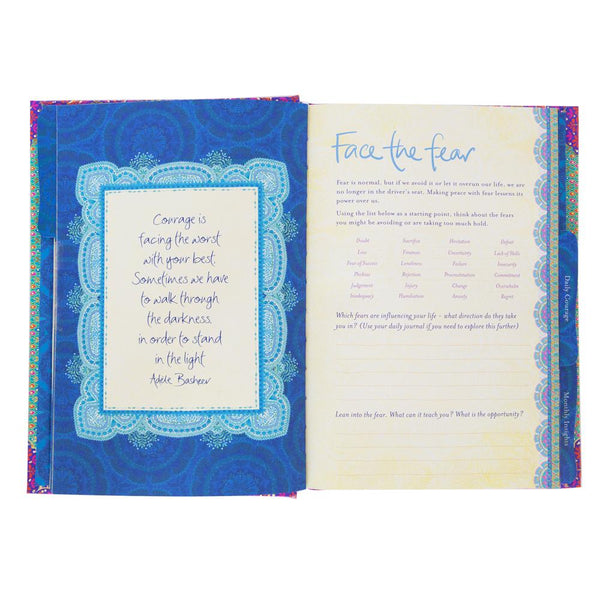 Courage is
facing the worst
with your best.
Sometimes we have
to walk through
the darkness
in order to stand
in the light
Adèle Basheer
Face the fear
Fear is normal, but if we avoid it or let it overrun our life, we are
no longer in the driver's seat. Making peace with fear lessens its
power over us.
Using the list below as a starting point, think about the fears
you might be avoiding or are taking too much hold.
Doubt Sacrifice Hesitation Defeat
Loss Finances Uncertainty Lack of Skills
Fear of Success Loneliness Failure Insecurity
Phobias Rejection Procrastination Commitment
Judgement Injury Change Overwhelm
Inadequacy Humiliation Anxiety Regret
Which fears are influencing your life - what direction do they take
you in? (Use your daily journal if you need to explore this further)
Lean into the fear. What can it teach you? What is the opportunity?
Daily Courage
Monthly Insights